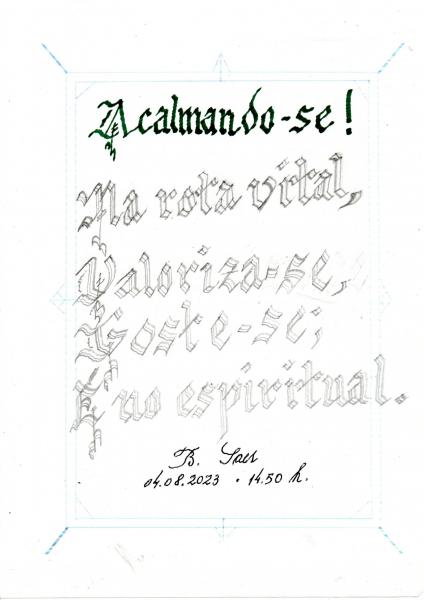 Acalmando-se!
Na rota vital,
Valoriza-se,
Goste-se;
E no espiritual.
B. Saes
04.08.2023 • 14.50 h.